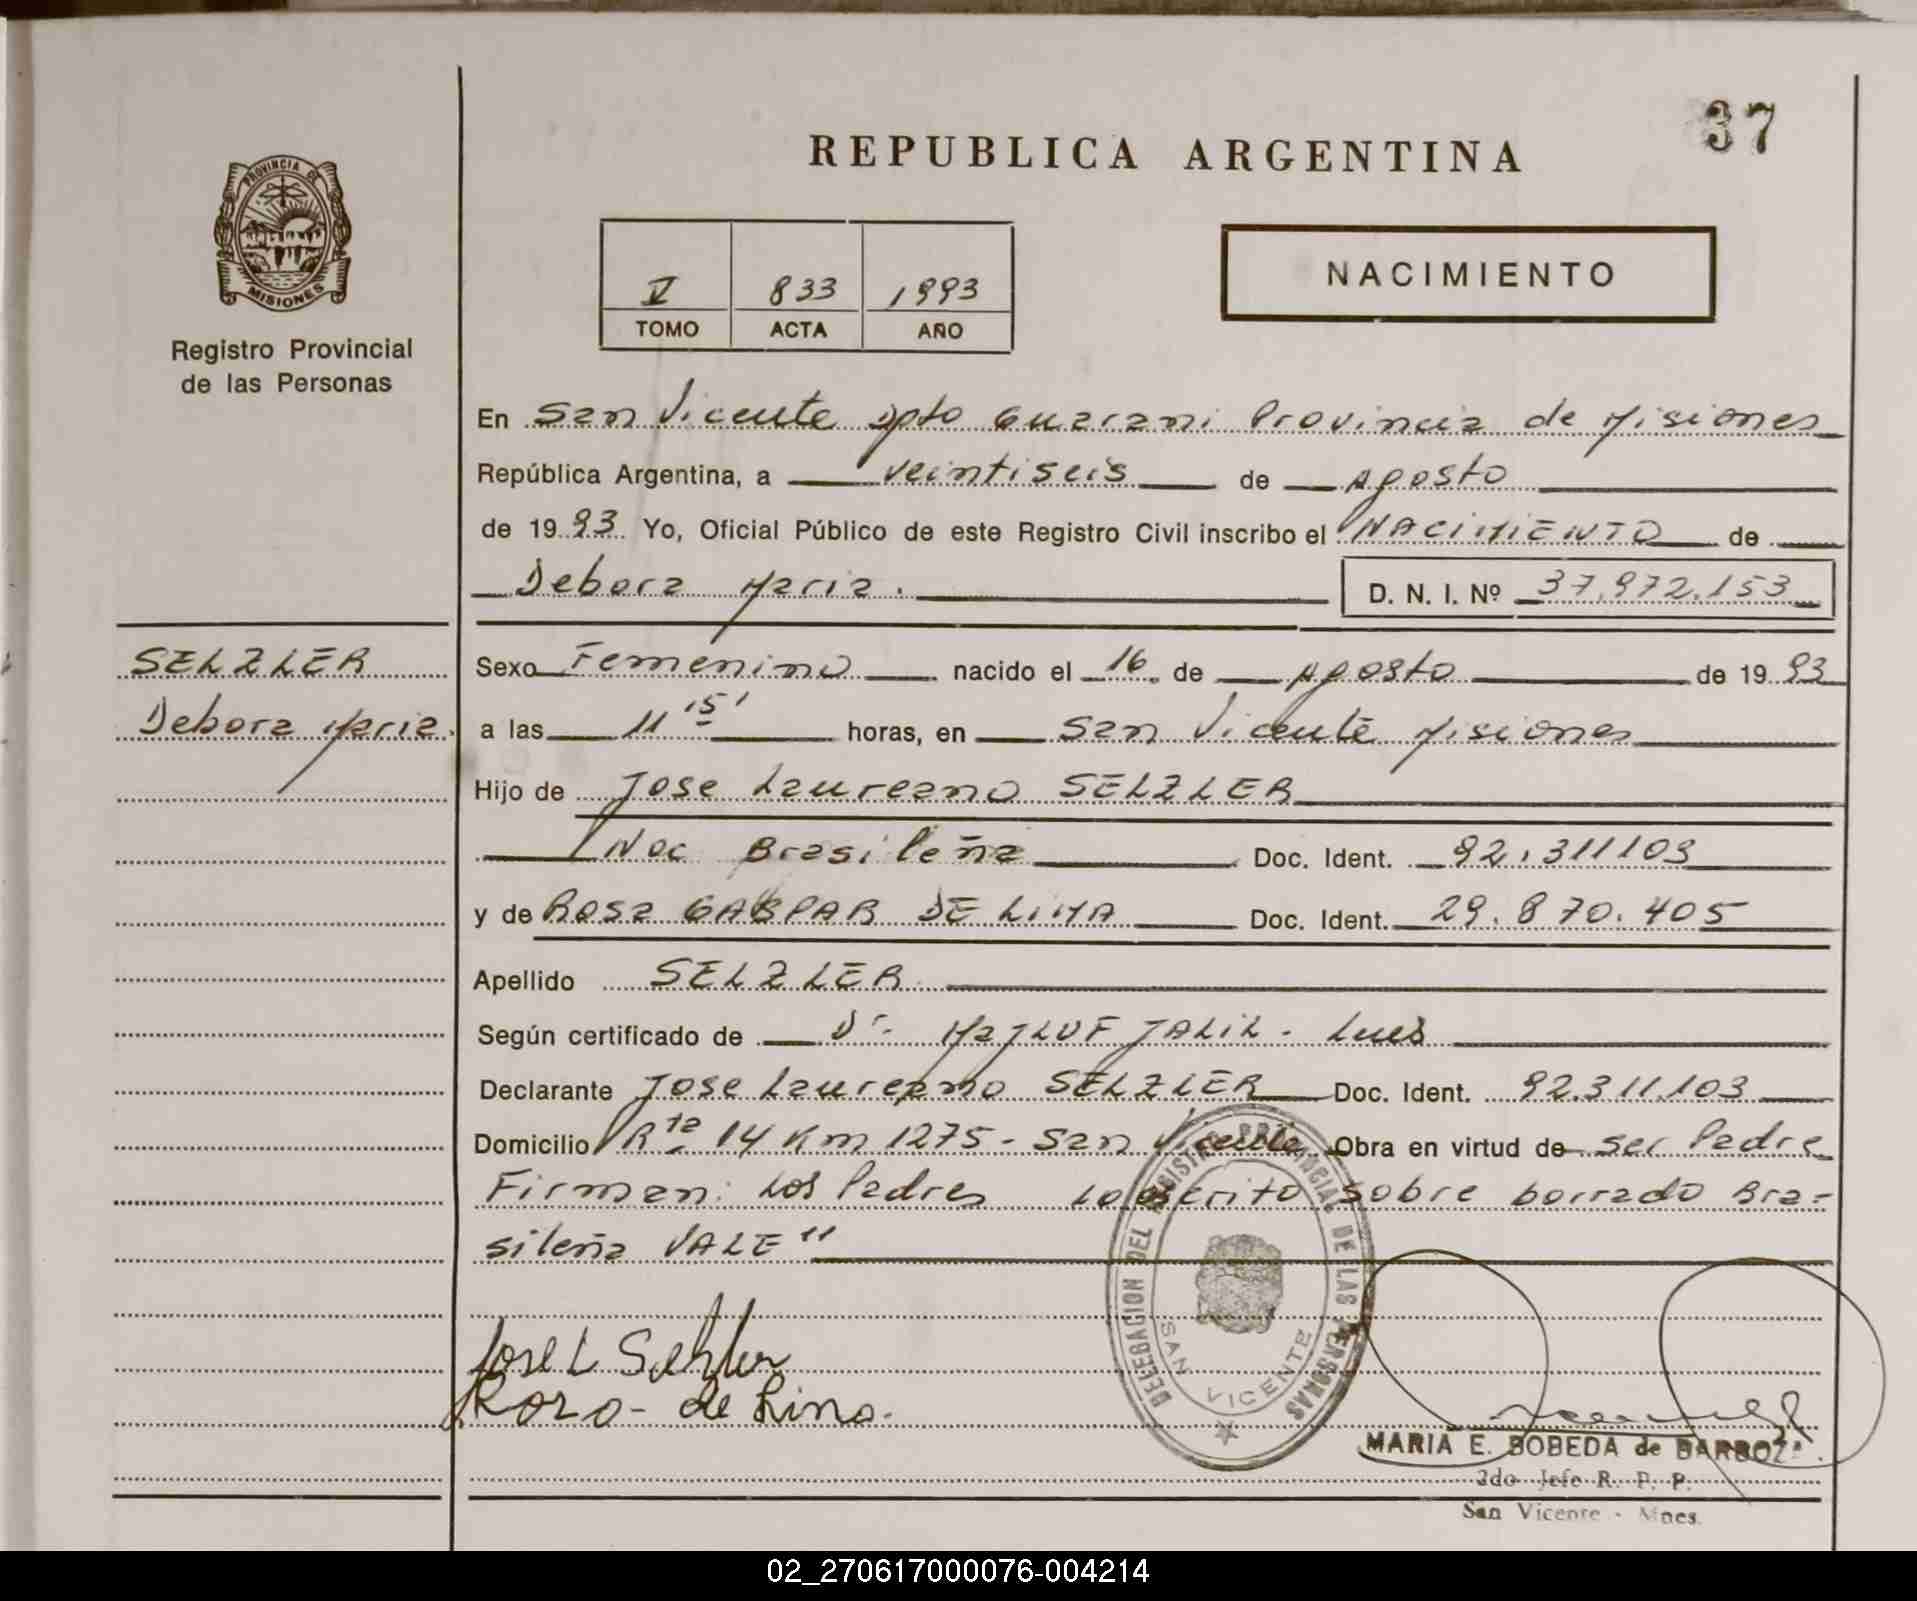 37
REPUBLICA ARGENTINA
PROVINCIA DE
MISIONES
Registro Provincial
de las Personas
V 833 1993
TOMO ACTA AÑO
NACIMIENTO
En San Vicente Dpto Guarani Provincia de Misiones
República Argentina, a veintiseis de Agosto
de 1993 Yo, Oficial Público de este Registro Civil inscribo el NACIMIENTO de
Debora Maria. D. N. I. Nº 37.972.153
SELZLER
Debora Maria.
Sexo Femenino nacido el 16 de Agosto de 1993
a las 11 15' horas, en San Vicente Misiones
Hijo de Jose Laureano SELZLER
Nac Brasileña Doc. Ident. 92.311103
y de Rosa GASPAR DE LIMA Doc. Ident. 29.870.405
Apellido SELZLER
Según certificado de Dr. MaJLUF JALIL - Luis
Declarante Jose Laureano SELZLER Doc. Ident. 92.311.103
Domicilio Rta 14 Km 1275 - San Vicente Obra en virtud de ser Padre
Firman: Los Padres Lo escrito sobre borrado Bra-
sileña VALE"
Jose L Selzler
Roza - de Lima.
DELEGACION DEL REGISTRO PROVINCIAL DE LAS PERSONAS
SAN VICENTE
MARIA E. BOBEDA de BARBOZA
2do Jefe R. P. P.
San Vicente - Mnes.
02_270617000076-004214